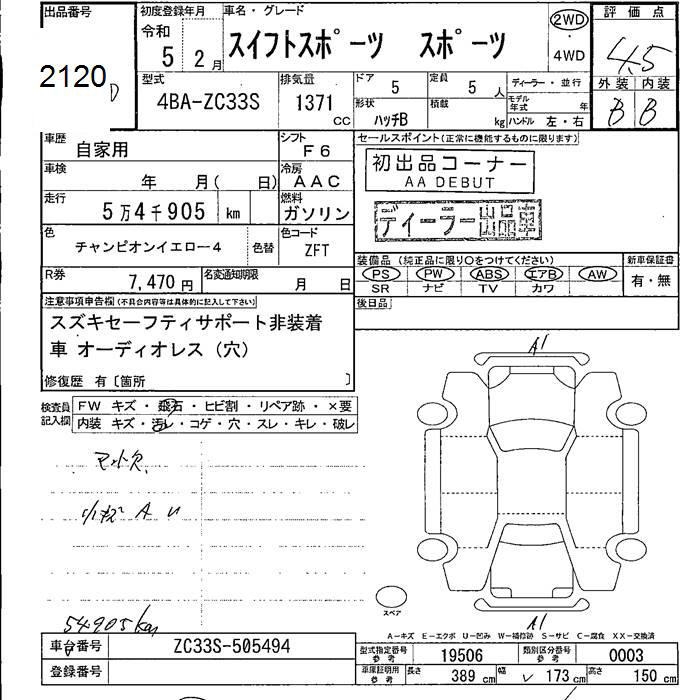 出品番号
2120
初度登録年月
令和
5 2月
車名・グレード
スイフトスポーツ スポーツ
2WD
・
4WD
評価点
4.5
外装 内装
B B
型式
4BA-ZC33S
排気量
1371
CC
ドア
5
定員
5
人
形状
ハッチB
積載
kg
ディーラー・並行
モデル年式
年
ハンドル 左・右
車歴
自家用
シフト
F6
車検
年 月( 日)
冷房
AAC
走行
5万4千905 km
燃料
ガソリン
色
チャンピオンイエロー4
色替
色コード
ZFT
R券
7,470円
名変通知期限
月 日
セールスポイント(正常に機能するものに限ります)
初出品コーナー
AA DEBUT
ディーラー出品車
装備品(純正品に限り○をつけてください)
PS PW ABS エアB AW
SR ナビ TV カワ
新車保証書
有・無
後日品
注意事項申告欄(不具合内容等は具体的に記入して下さい)
スズキセーフティサポート非装着
車 オーディオレス(穴)
修復歴 有〔箇所 〕
検査員
記入欄
FW キズ・飛石・ヒビ割・リペア跡・×要
内装 キズ・汚レ・コゲ・穴・スレ・キレ・破レ
マット欠
A U
54905km
A1
A1
スペア
A-キズ E-エクボ U-凹み W-補修跡 S-サビ C-腐食 XX-交換済
車台番号
ZC33S-505494
登録番号
型式指定番号
参考
19506
類別区分番号
参考
0003
車庫証明用
参考
長さ
389 cm
幅
173 cm
高さ
150 cm